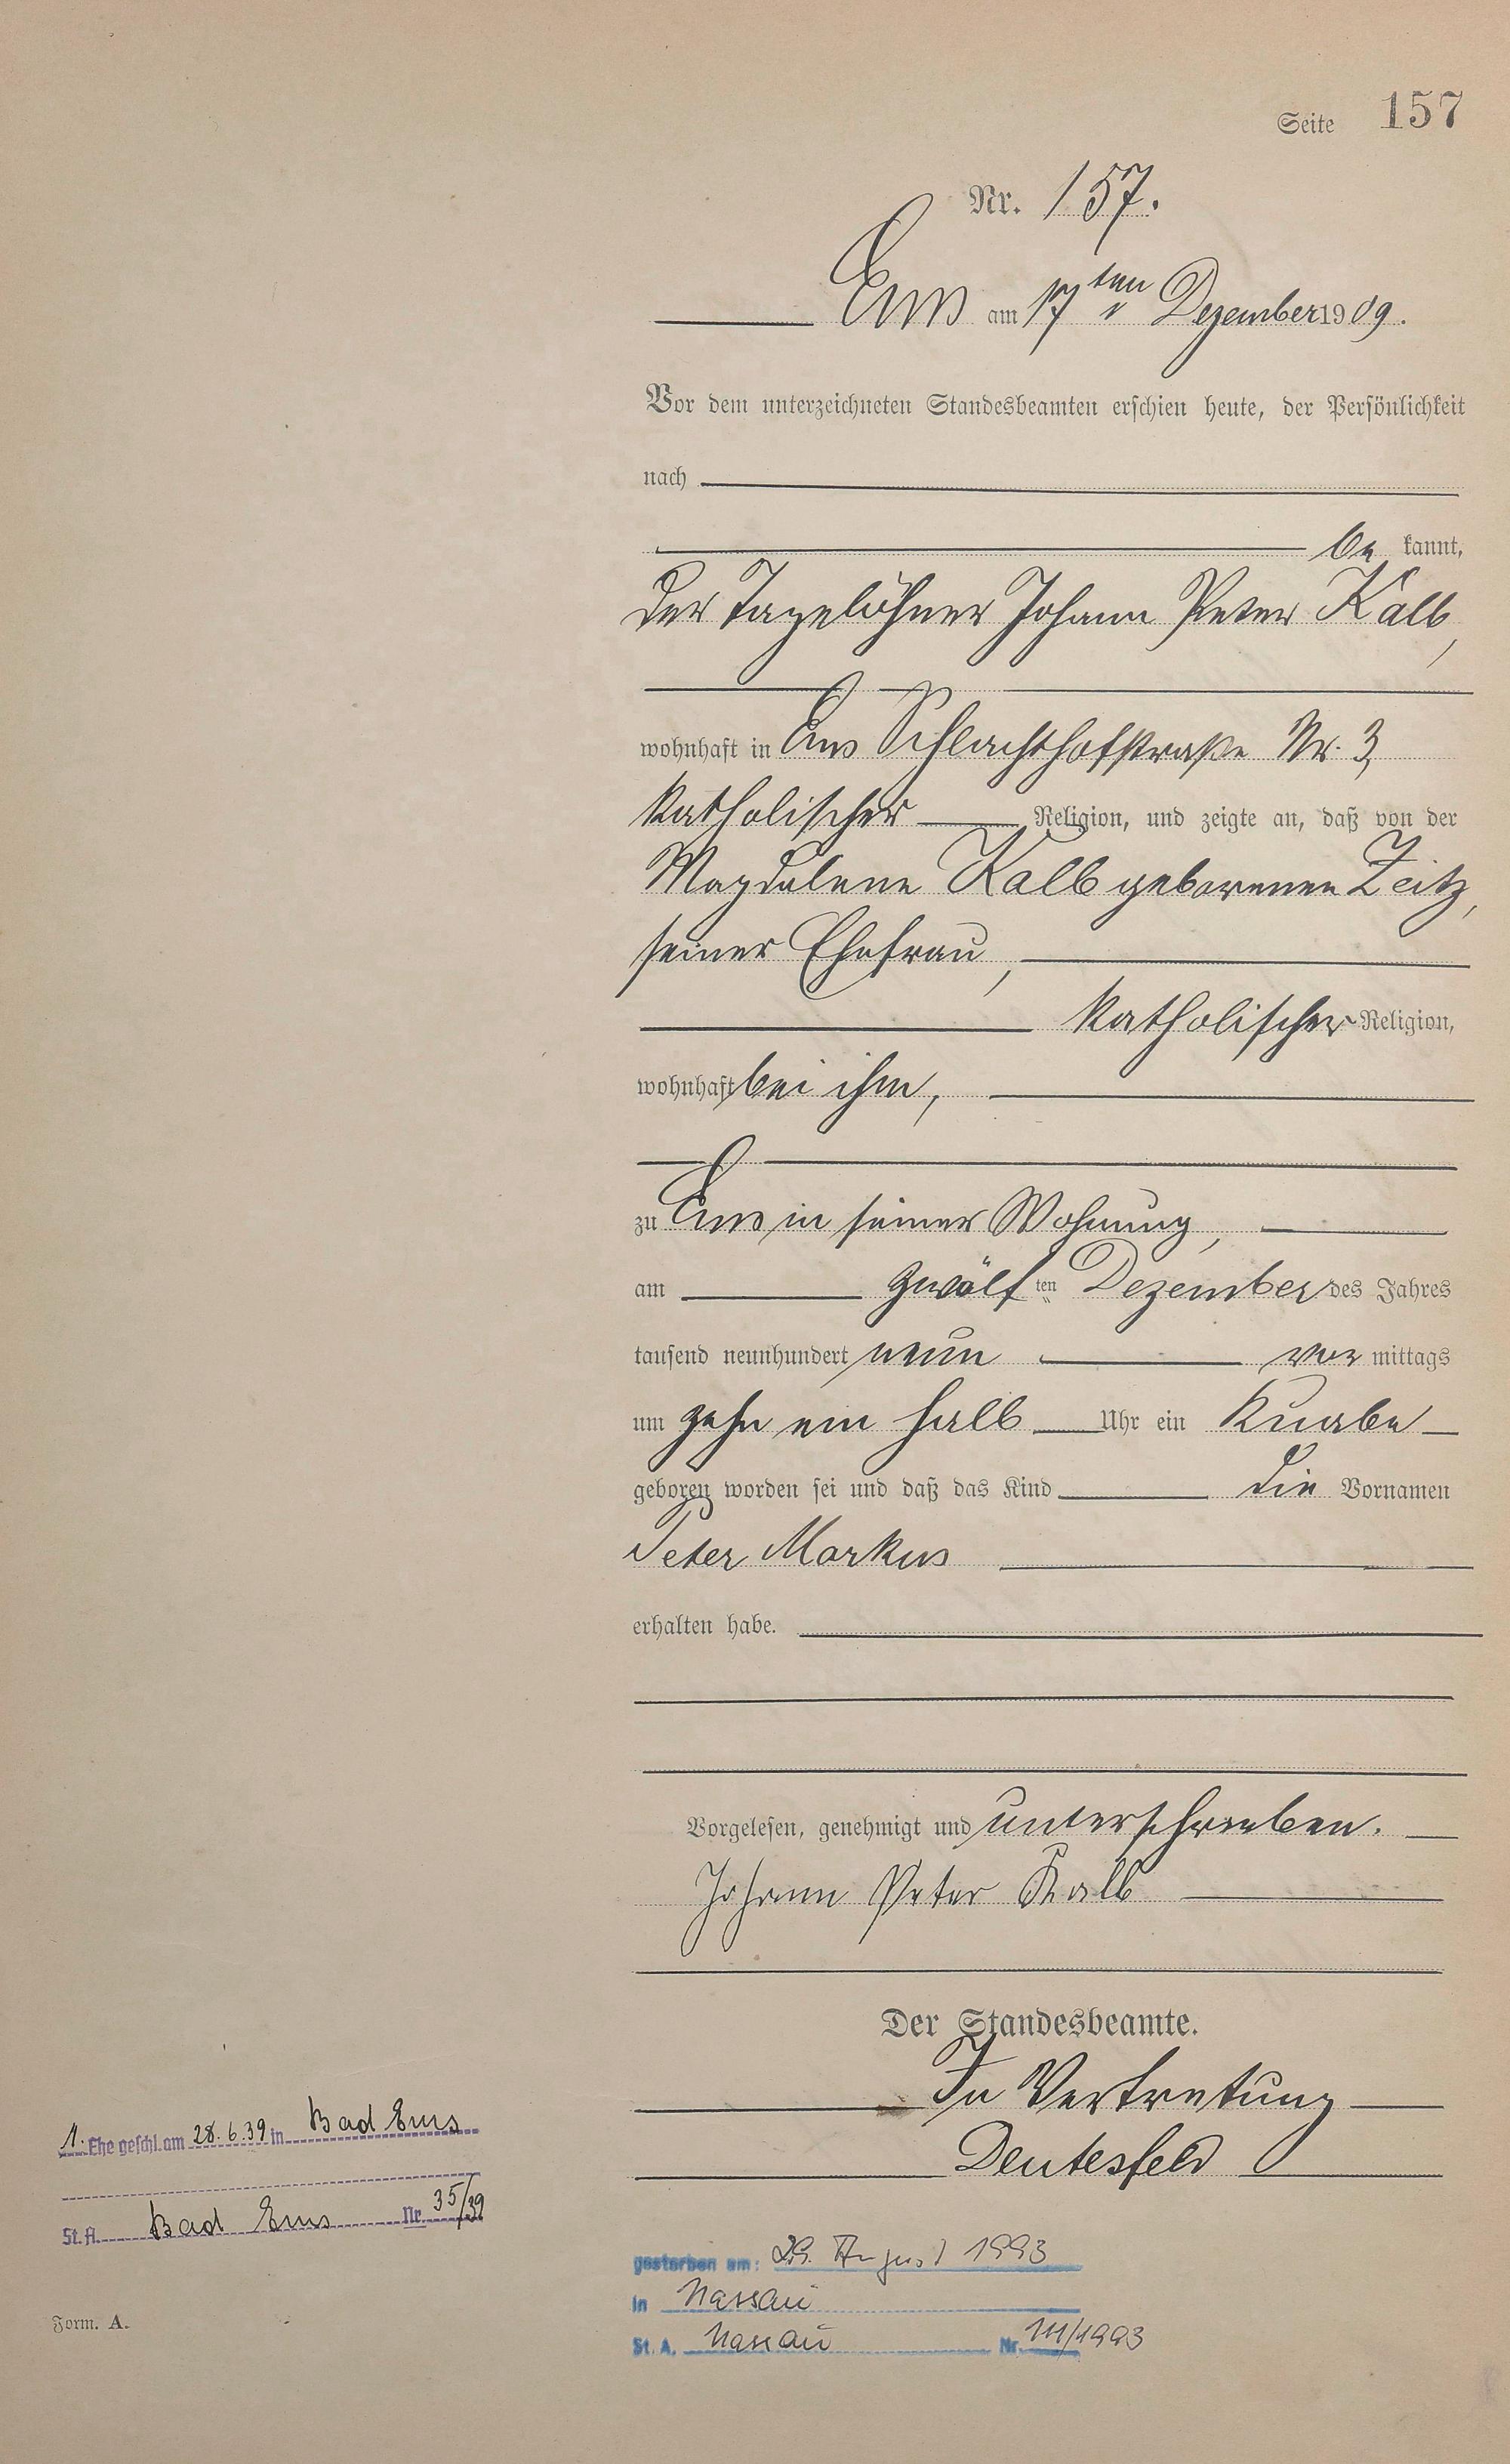 Seite 157
Nr. 157.
Ems am 17ten Dezember 1909.
Vor dem unterzeichneten Standesbeamten erschien heute, der Persönlichkeit
nach
be kannt,
der Tagelöhner Johann Peter Kalb,
wohnhaft in Ems Schlachthofstraße Nr. 3,
katholischer Religion, und zeigte an, daß von der
Magdalene Kalb geborenen Zeitz,
seiner Ehefrau,
katholischer Religion,
wohnhaft bei ihm,
zu Ems in seiner Wohnung,
am zwölf ten Dezember des Jahres
tausend neunhundert neun vor mittags
um zehn ein halb Uhr ein Knabe
geboren worden sei und daß das Kind die Vornamen
Peter Markus
erhalten habe.
Vorgelesen, genehmigt und unterschrieben.
Johann Peter Kalb
Der Standesbeamte.
In Vertretung
Deutesfeld
1. Ehe geschl. am 28.6.39 in Bad Ems
St. A. Bad Ems Nr. 35/39
gestorben am: 29. August 1993
in Nassau
St. A. Nassau Nr. 111/1993
Form. A.